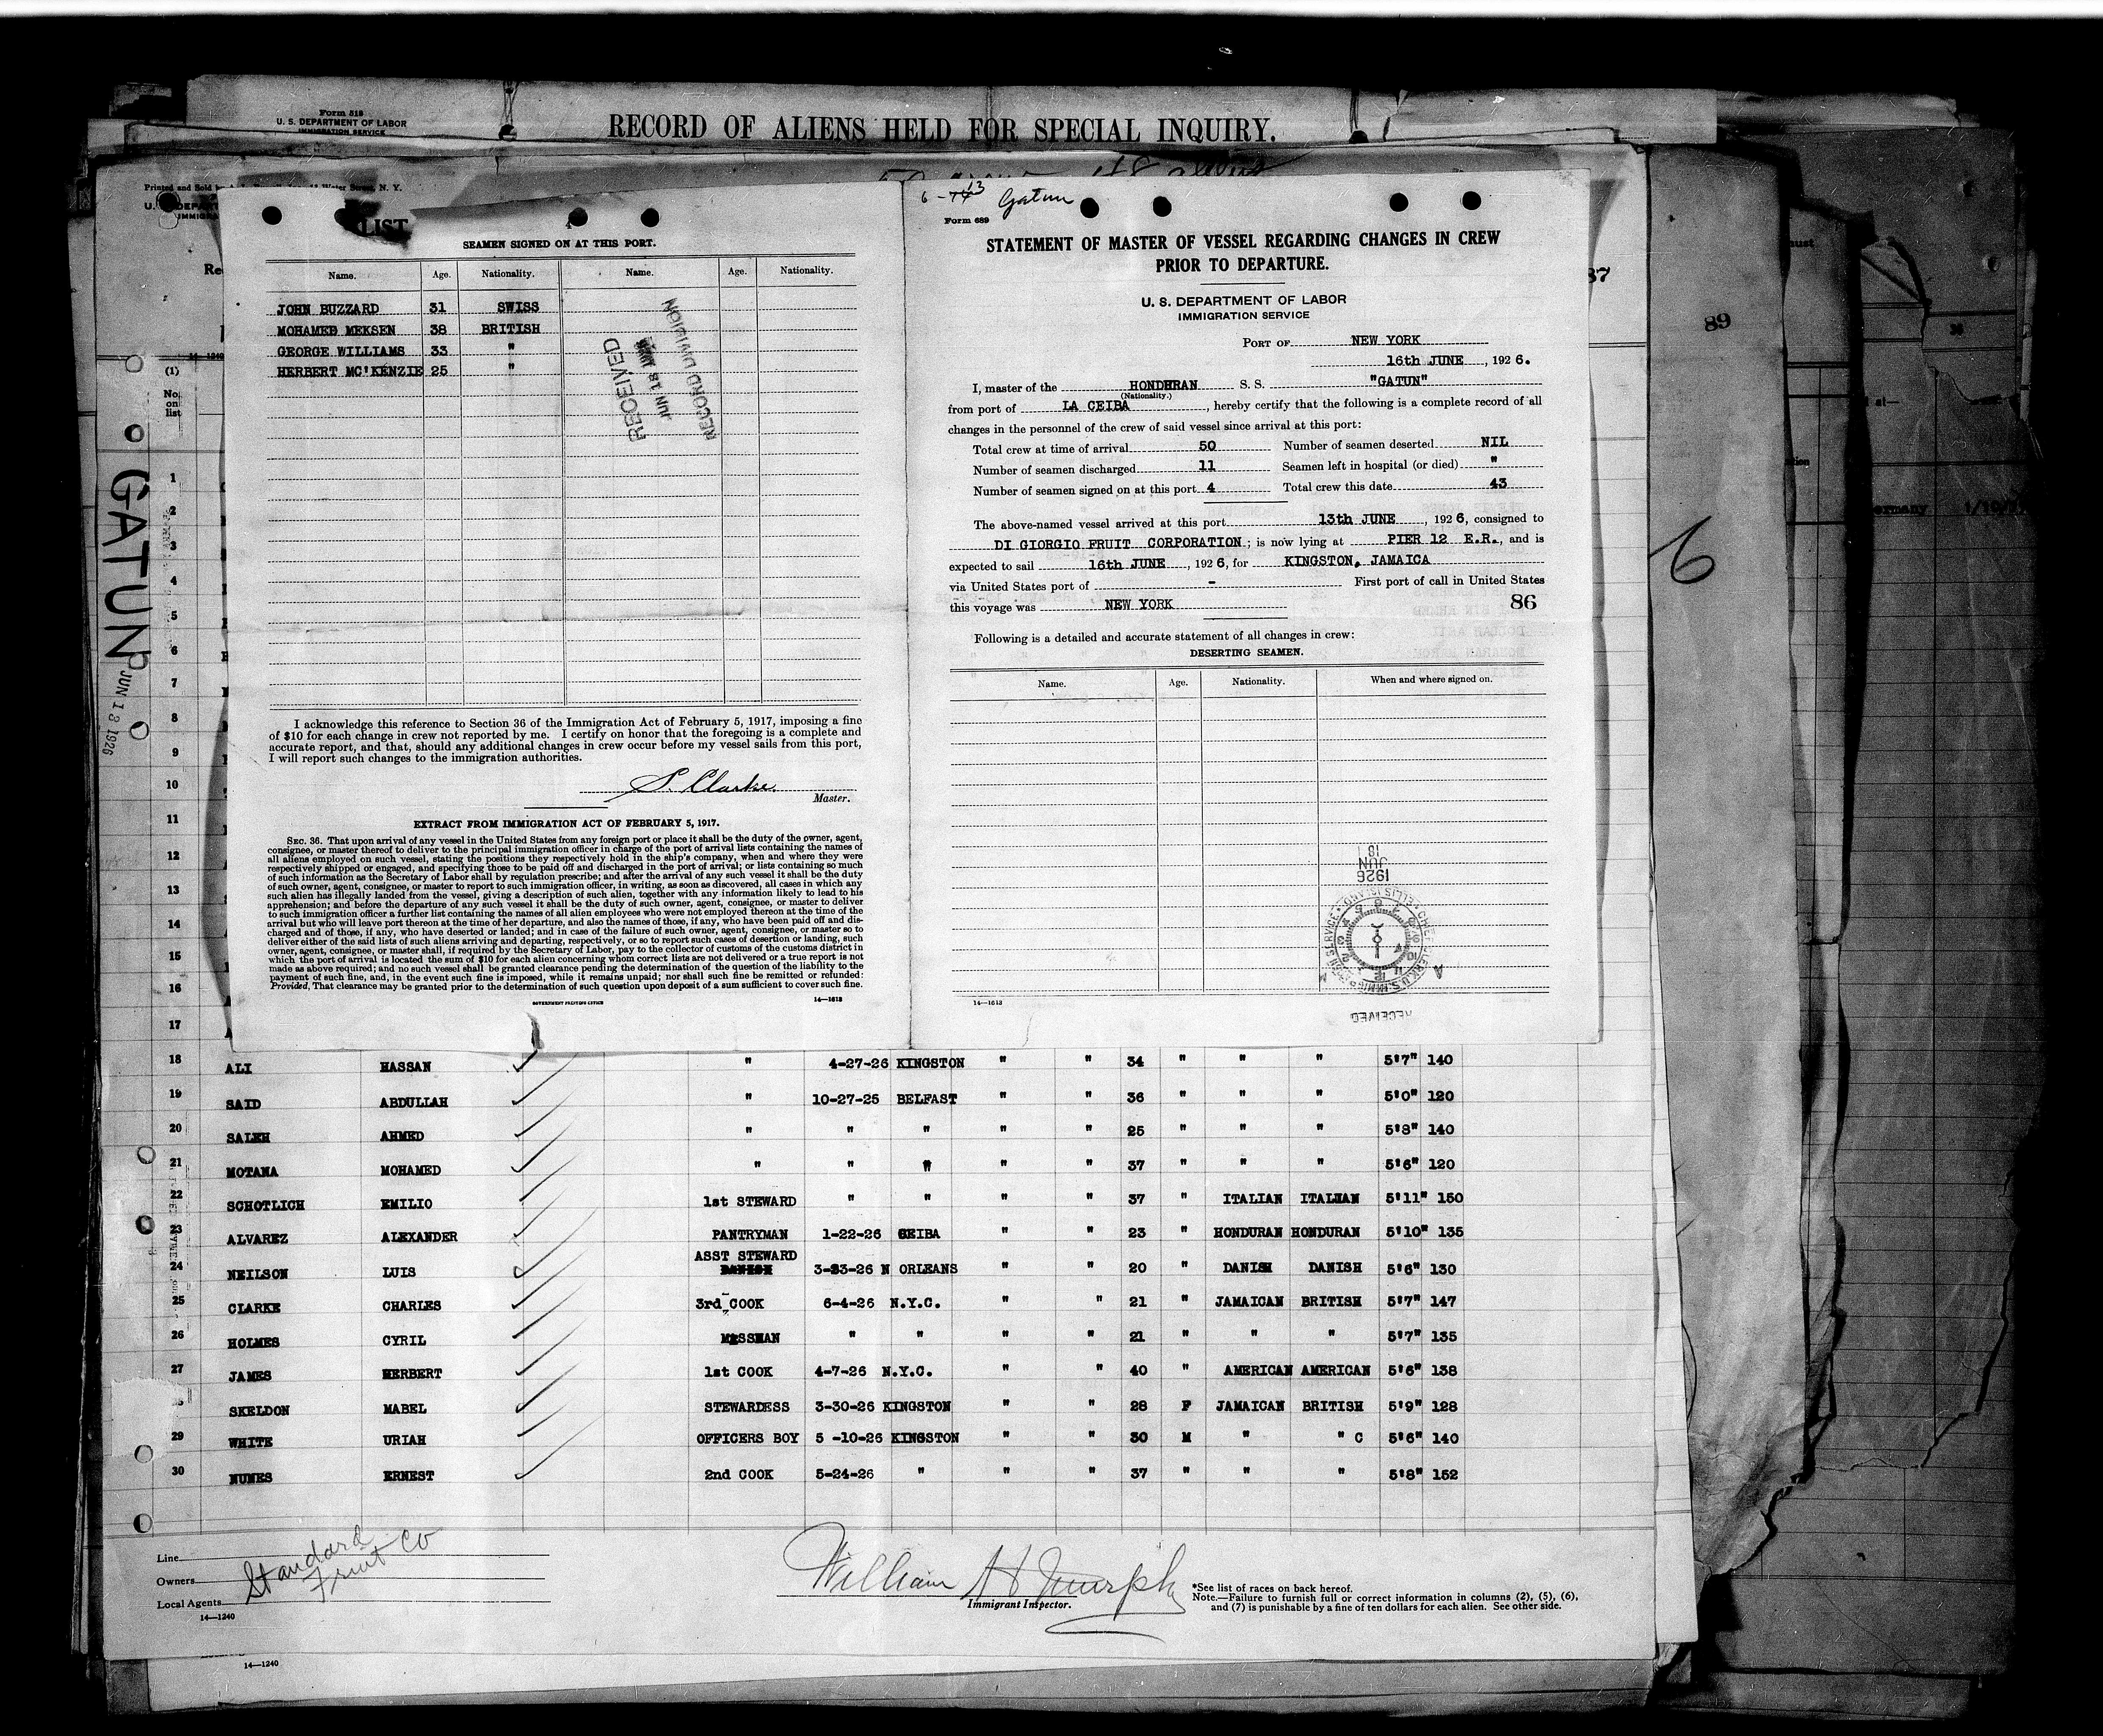 Form 519
U. S. DEPARTMENT OF LABOR
IMMIGRATION SERVICE
RECORD OF ALIENS HELD FOR SPECIAL INQUIRY.
Printed and Sold by Water Street, N. Y.
LIST
SEAMEN SIGNED ON AT THIS PORT.
Name. Age. Nationality. Name. Age. Nationality.
JOHN BUZZARD 31 SWISS
MOHAMED MEKSEN 38 BRITISH
GEORGE WILLIAMS 33 "
HERBERT MC'KENZIE 25 "
RECEIVED
JUN 18
RECORD DIVISION
I acknowledge this reference to Section 36 of the Immigration Act of February 5, 1917, imposing a fine
of $10 for each change in crew not reported by me. I certify on honor that the foregoing is a complete and
accurate report, and that, should any additional changes in crew occur before my vessel sails from this port,
I will report such changes to the immigration authorities.
S. Clarke
Master.
EXTRACT FROM IMMIGRATION ACT OF FEBRUARY 5, 1917.
SEC. 36. That upon arrival of any vessel in the United States from any foreign port or place it shall be the duty of the owner, agent,
consignee, or master thereof to deliver to the principal immigration officer in charge of the port of arrival lists containing the names of
all aliens employed on such vessel, stating the positions they respectively hold in the ship's company, when and where they were
respectively shipped or engaged, and specifying those to be paid off and discharged in the port of arrival; or lists containing so much
of such information as the Secretary of Labor shall by regulation prescribe; and after the arrival of any such vessel it shall be the duty
of such owner, agent, consignee, or master to report to such immigration officer, in writing, as soon as discovered, all cases in which any
such alien has illegally landed from the vessel, giving a description of such alien, together with any information likely to lead to his
apprehension; and before the departure of any such vessel it shall be the duty of such owner, agent, consignee, or master to deliver
to such immigration officer a further list containing the names of all alien employees who were not employed thereon at the time of the
arrival but who will leave port thereon at the time of her departure, and also the names of those, if any, who have been paid off and dis-
charged and of those, if any, who have deserted or landed; and in case of the failure of such owner, agent, consignee, or master so to
deliver either of the said lists of such aliens arriving and departing, respectively, or so to report such cases of desertion or landing, such
owner, agent, consignee, or master shall, if required by the Secretary of Labor, pay to the collector of customs of the customs district in
which the port of arrival is located the sum of $10 for each alien concerning whom correct lists are not delivered or a true report is not
made as above required; and no such vessel shall be granted clearance pending the determination of the question of the liability to the
payment of such fine, and, in the event such fine is imposed, while it remains unpaid; nor shall such fine be remitted or refunded:
Provided, That clearance may be granted prior to the determination of such question upon deposit of a sum sufficient to cover such fine.
GOVERNMENT PRINTING OFFICE 14—1613
6 - 13 Gatun
Form 689
STATEMENT OF MASTER OF VESSEL REGARDING CHANGES IN CREW
PRIOR TO DEPARTURE.
U. S. DEPARTMENT OF LABOR
IMMIGRATION SERVICE
PORT OF NEW YORK
16th JUNE, 1926.
I, master of the HONDURAN S. S. "GATUN"
(Nationality.)
from port of LA CEIBA, hereby certify that the following is a complete record of all
changes in the personnel of the crew of said vessel since arrival at this port:
Total crew at time of arrival 50 Number of seamen deserted NIL
Number of seamen discharged 11 Seamen left in hospital (or died) "
Number of seamen signed on at this port 4 Total crew this date 43
The above-named vessel arrived at this port 13th JUNE, 1926, consigned to
DI GIORGIO FRUIT CORPORATION; is now lying at PIER 12 E.R., and is
expected to sail 16th JUNE, 1926, for KINGSTON, JAMAICA
via United States port of - First port of call in United States
this voyage was NEW YORK 86
Following is a detailed and accurate statement of all changes in crew:
DESERTING SEAMEN.
Name. Age. Nationality. When and where signed on.
JUN 18 1926
RECEIVED
14—1613
87
89
6
(1)
No. on list
GATUN
JUN 18 1926
1
2
3
4
5
6
7
8
9
10
11
12
13
14
15
16
17
18 ALI HASSAN " 4-27-26 KINGSTON " " 34 " " " 5'7" 140
19 SAID ABDULLAH " 10-27-25 BELFAST " " 36 " " " 5'0" 120
20 SALEH AHMED " " " " " 25 " " " 5'8" 140
21 MOTANA MOHAMED " " " " " 37 " " " 5'6" 120
22 SCHOTLICH EMILIO 1st STEWARD " " " " 37 " ITALIAN ITALIAN 5'11" 150
23 ALVAREZ ALEXANDER PANTRYMAN 1-22-26 CEIBA " " 23 " HONDURAN HONDURAN 5'10" 135
24 NEILSON LUIS ASST STEWARD 3-23-26 N ORLEANS " " 20 " DANISH DANISH 5'6" 130
25 CLARKE CHARLES 3rd COOK 6-4-26 N.Y.C. " " 21 " JAMAICAN BRITISH 5'7" 147
26 HOLMES CYRIL MESSMAN " " " " 21 " " " 5'7" 135
27 JAMES HERBERT 1st COOK 4-7-26 N.Y.C. " " 40 " AMERICAN AMERICAN 5'6" 138
SKELDON MABEL STEWARDESS 3-30-26 KINGSTON " " 28 F JAMAICAN BRITISH 5'9" 128
29 WHITE URIAH OFFICERS BOY 5 -10-26 KINGSTON " " 30 M " " C 5'6" 140
30 NUNES ERNEST 2nd COOK 5-24-26 " " " 37 " " " 5'8" 152
Line
Owners Standard Fruit Co
Local Agents
14—1240
William H Murphy
Immigrant Inspector.
*See list of races on back hereof.
Note.—Failure to furnish full or correct information in columns (2), (5), (6),
and (7) is punishable by a fine of ten dollars for each alien. See other side.
14—1240